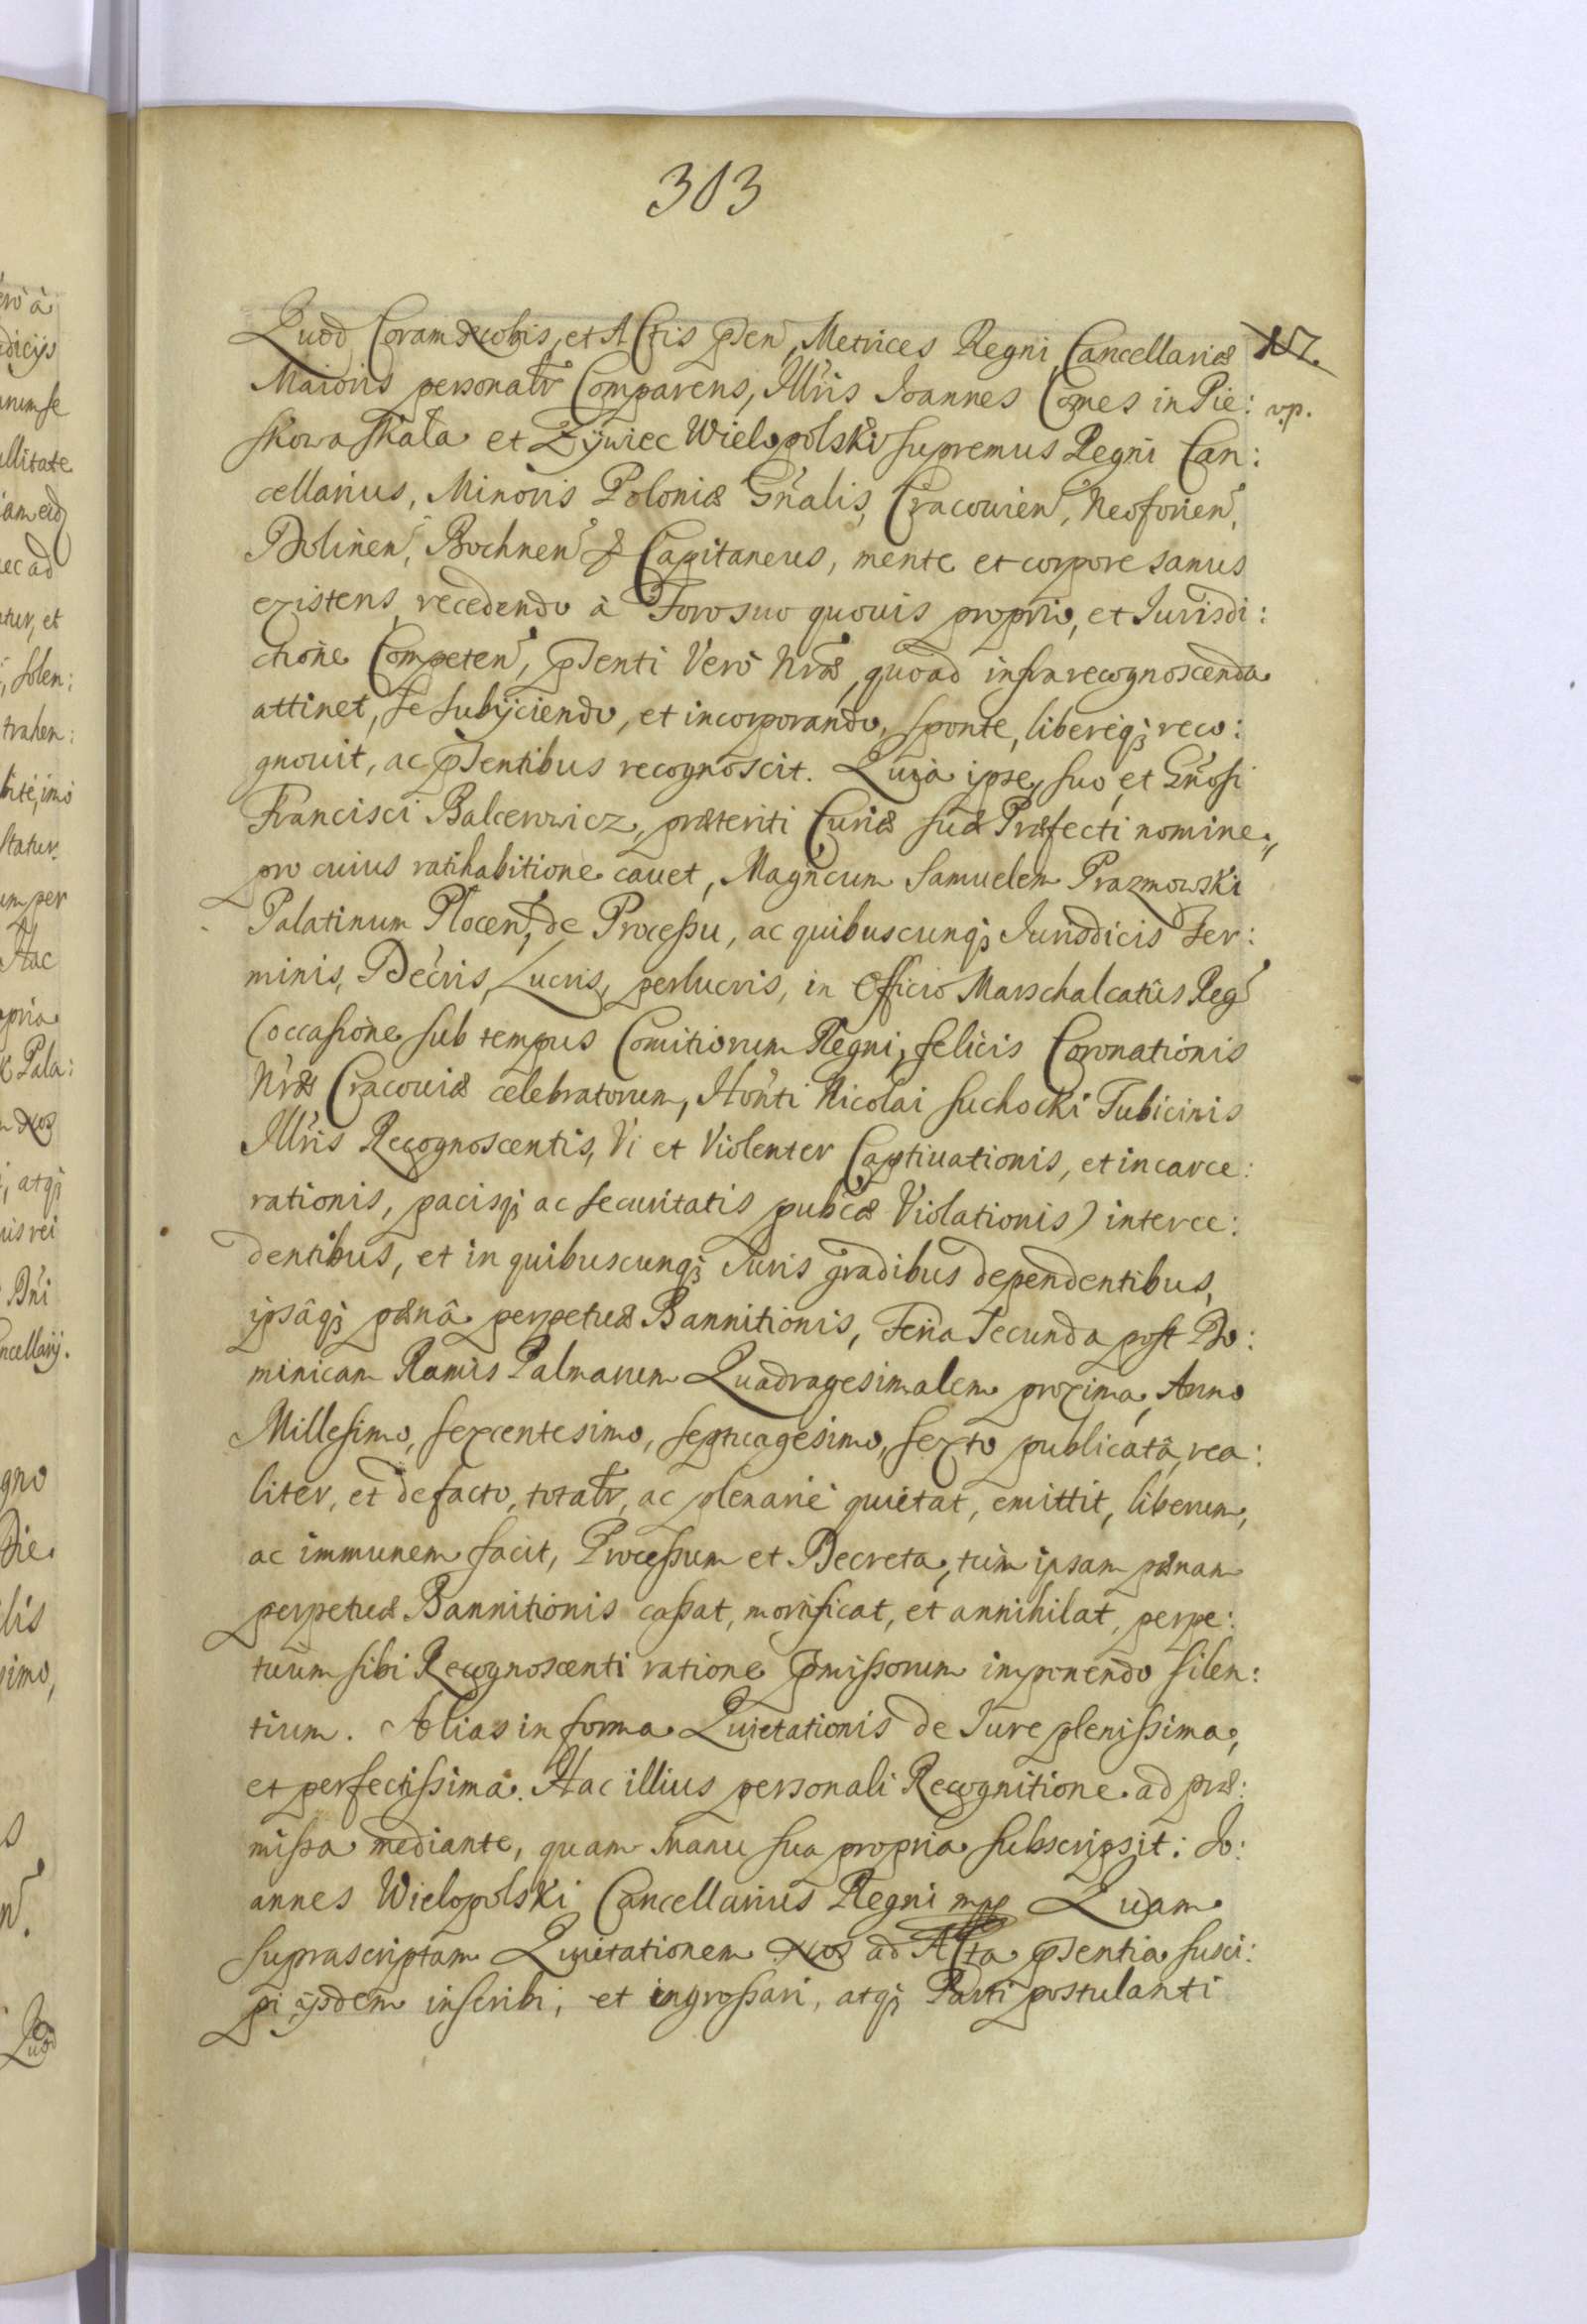 303
Quod Coram Nobis, et Actis pñen, Metrices Regni Cancellariæ
Maioris personalr Comparens, Illris Joannes Comes in Pie:
skowa skała et Zÿwiec Wielopolski supremus Regni Can:
cellarius, Minoris Poloniæ Gnalis, Cracouien, Neoforien,
Dolinen, Bochnen & Capitaneus, mente et corpore sanus
existens, recedendo à Foro suo quouis proprio, et Jurisdi:
ctione Competen, pñenti Verò Nræ, quoad infra recognoscenda
attinet, se subÿciendo, et incorporando, sponte, libereq; reco:
gnouit, ac pñentibus recognoscit. Quia ipse, suo, et Gnosi
Francisci Balcerowicz, præteriti Curiæ suæ Præfecti nomine,
pro cuius ratihabitione cauet, Magncum Samuelem Prazmowski
Palatinum Plocen, de Processu, ac quibuscunq; Jurisdicis Ter:
minis, Decris, Lucris, perlucris, in Officio Marschalcatus Reg
(occasione sub tempus Comitiorum Regni, felicis Coronationis
Nræ Cracouiæ celebratorum, Honti Nicolai Suchocki Tubicinis
Illris Recognoscentis, Vi et Violenter Captiuationis, et incarce:
rationis, pacisq; ac securitatis pubcæ Violationis) interce:
dentibus, et in quibuscunq; Juris gradibus dependentibus,
ipsâq; pænâ perpetuæ Bannitionis, Feria Secunda post Do:
minicam Ramis Palmarum Quadragesimalem proxima, Anno
Millesimo, sexcentesimo, septuagesimo, sexto publicatâ, rea:
liter, et de facto, totalr, ac plenariè quietat, emittit, liberum,
ac immunem facit, Processum et Decreta, tum ipsam pænam
perpetuæ Bannitionis cassat, mortificat, et annihilat, perpe:
tuum sibi Recognoscenti ratione pmissorum imponendo silen:
tium. Alias in forma Quietationis de Jure plenissima,
et perfectissima. Hac illius personali Recognitione ad præ:
missa mediante, quam manu sua propria subscripsit: Jo:
annes Wielopolski Cancellarius Regni mp Quam
suprascriptam Quietationem Nos ad Acta pñentia susci:
pi, ÿsdem inscribi, et ingrossari, atq; Parti postulanti